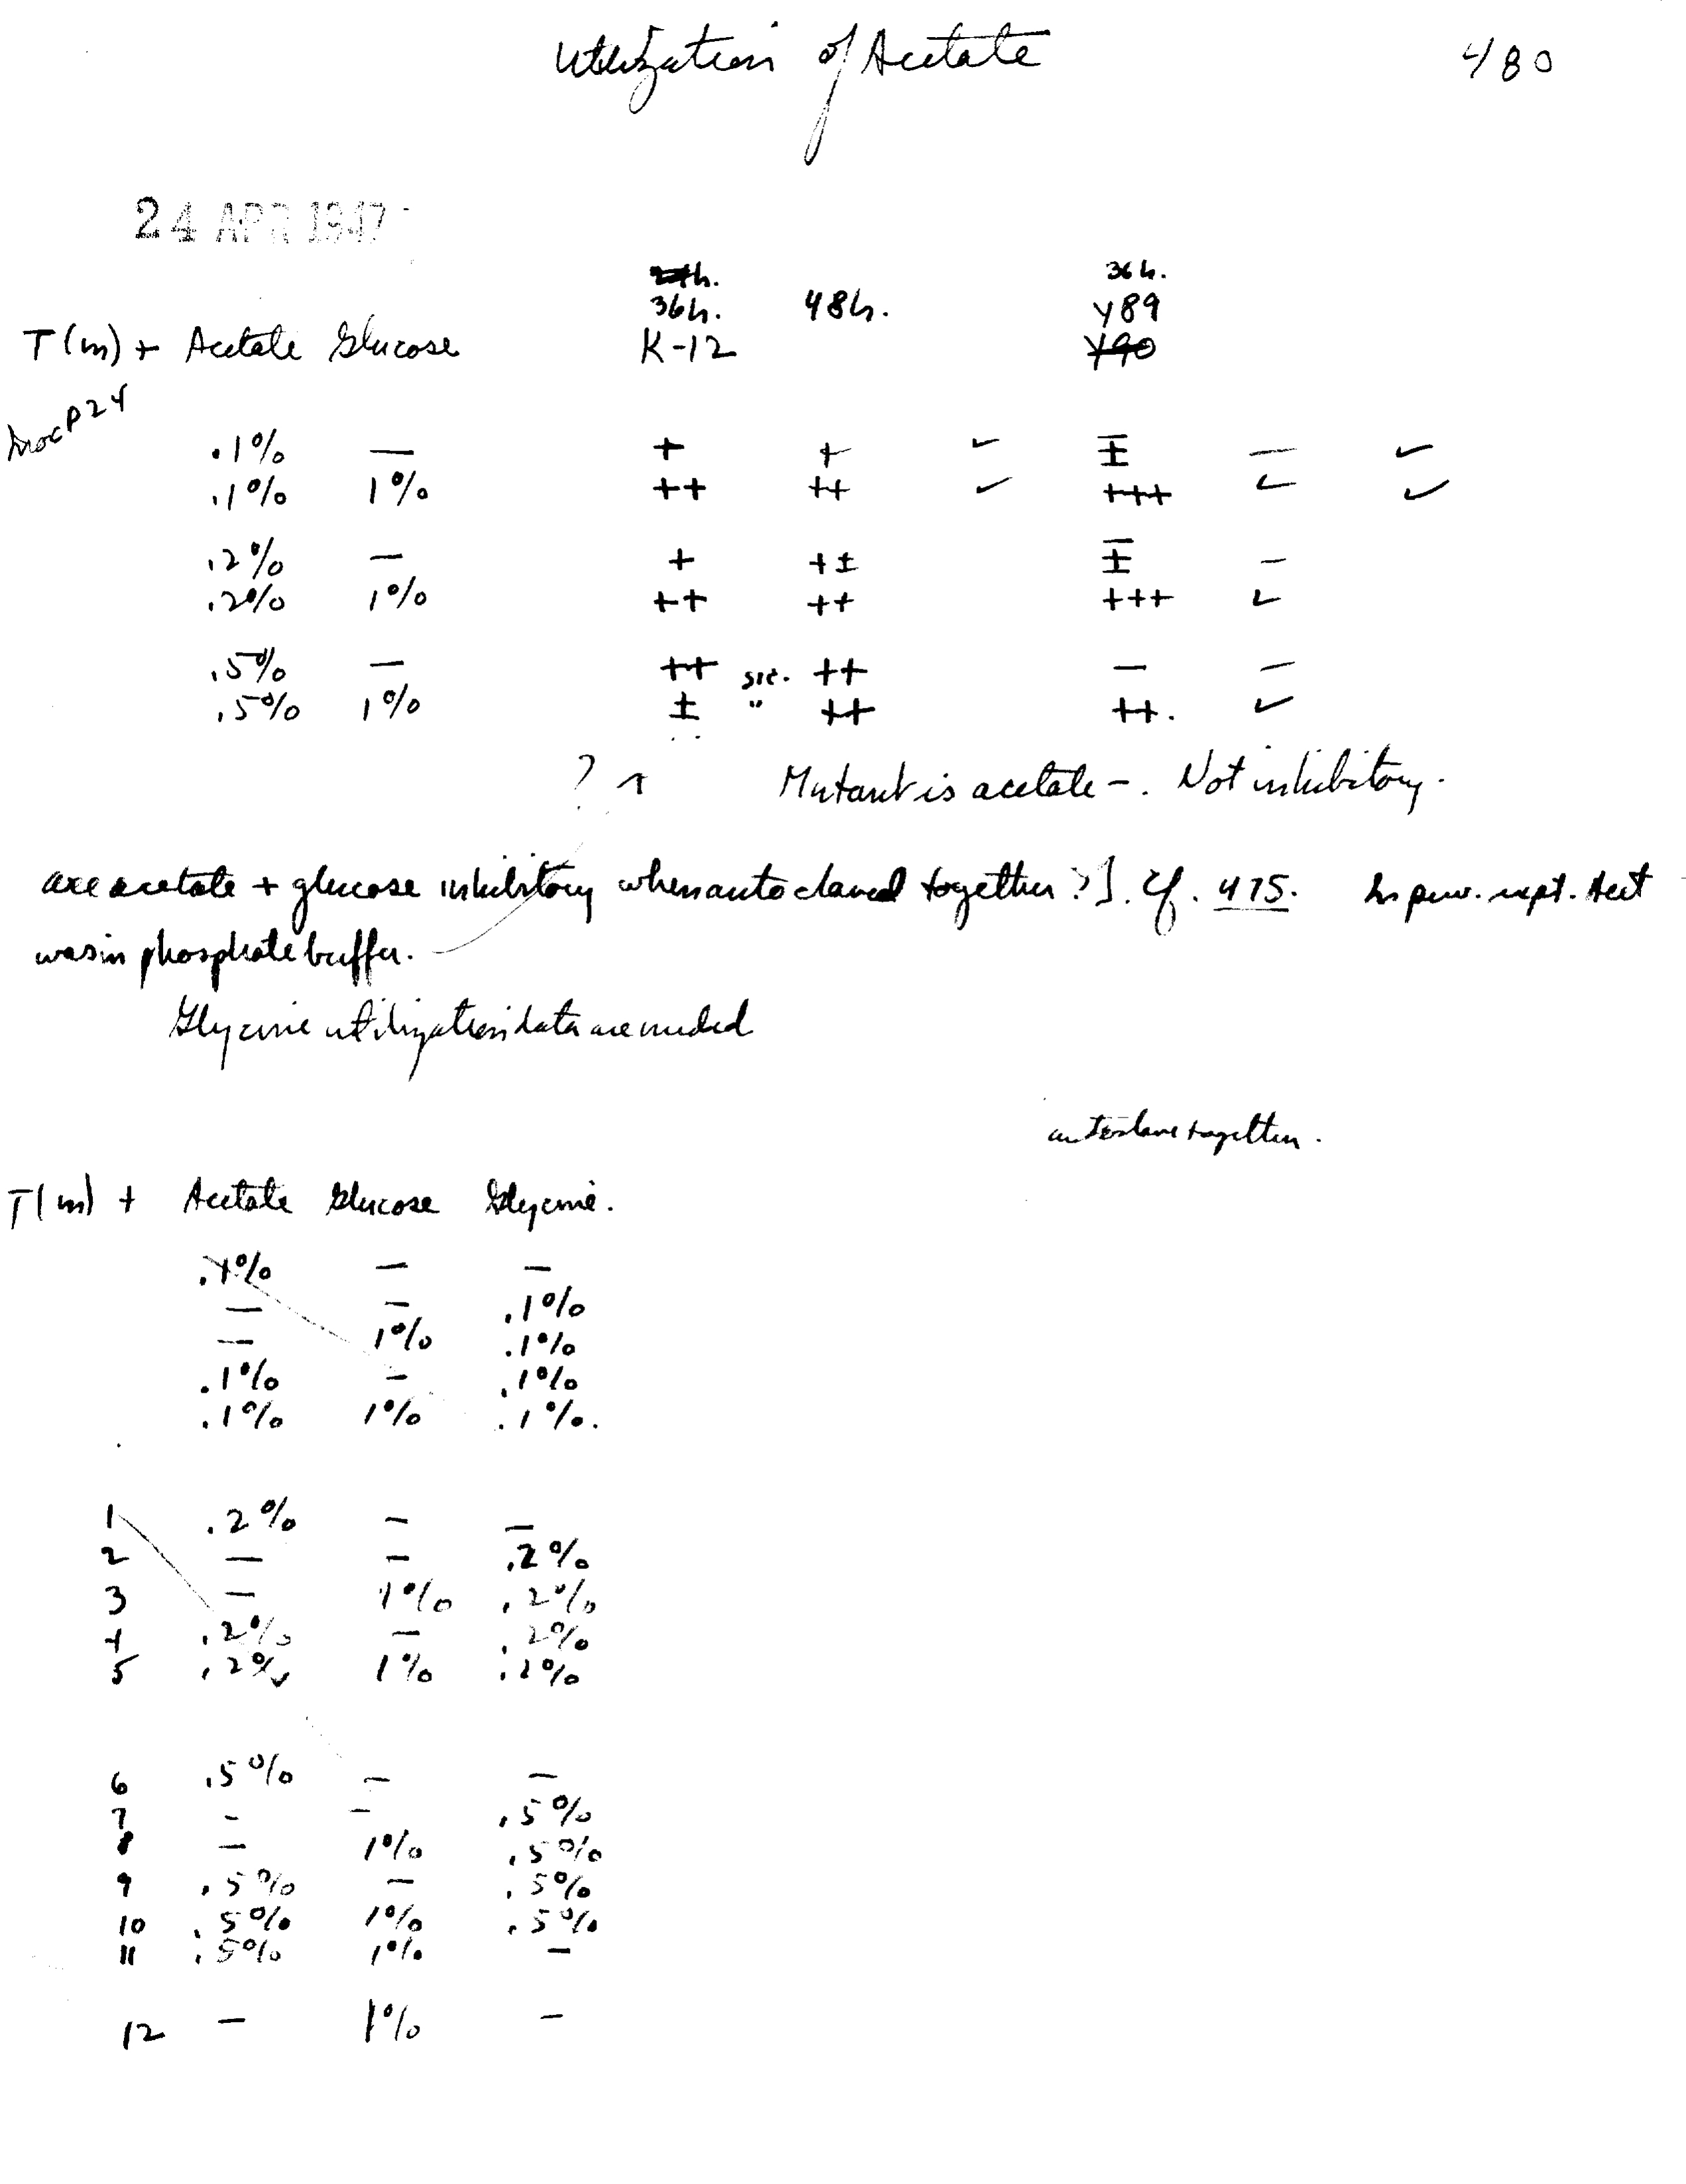 Utilization of Acetate 480
24 APR 1947
36h.
36h. 48h. Y89
T(m) + Acetate Glucose K-12 Y90
Inoc P24
.1% — + + ✓ ± — ✓
.1% 1% ++ ++ ✓ +++ ✓ ✓
.2% — + +± ± —
.2% 1% ++ ++ +++ ✓
.5% — ++ sic. ++ — —
.5% 1% ± " ++ ++. ✓
? ↑ Mutant is acetate –. Not inhibitory.
are acetate + glucose inhibitory when autoclaved together?]. Cf. 475. In prev. expt. test
was in phosphate buffer.
Glycine utilization data are needed
autoclave together.
T(m) + Acetate Glucose Glycine.
.1% — —
— — .1%
— 1% .1%
.1% — .1%
.1% 1% .1%.
1 .2% — —
2 — — .2%
3 — 1% .2%
4 .2% — .2%
5 .2% 1% .2%
6 .5% — —
7 - — .5%
8 — 1% .5%
9 .5% — .5%
10 .5% 1% .5%
11 .5% 1% —
12 — 1% —